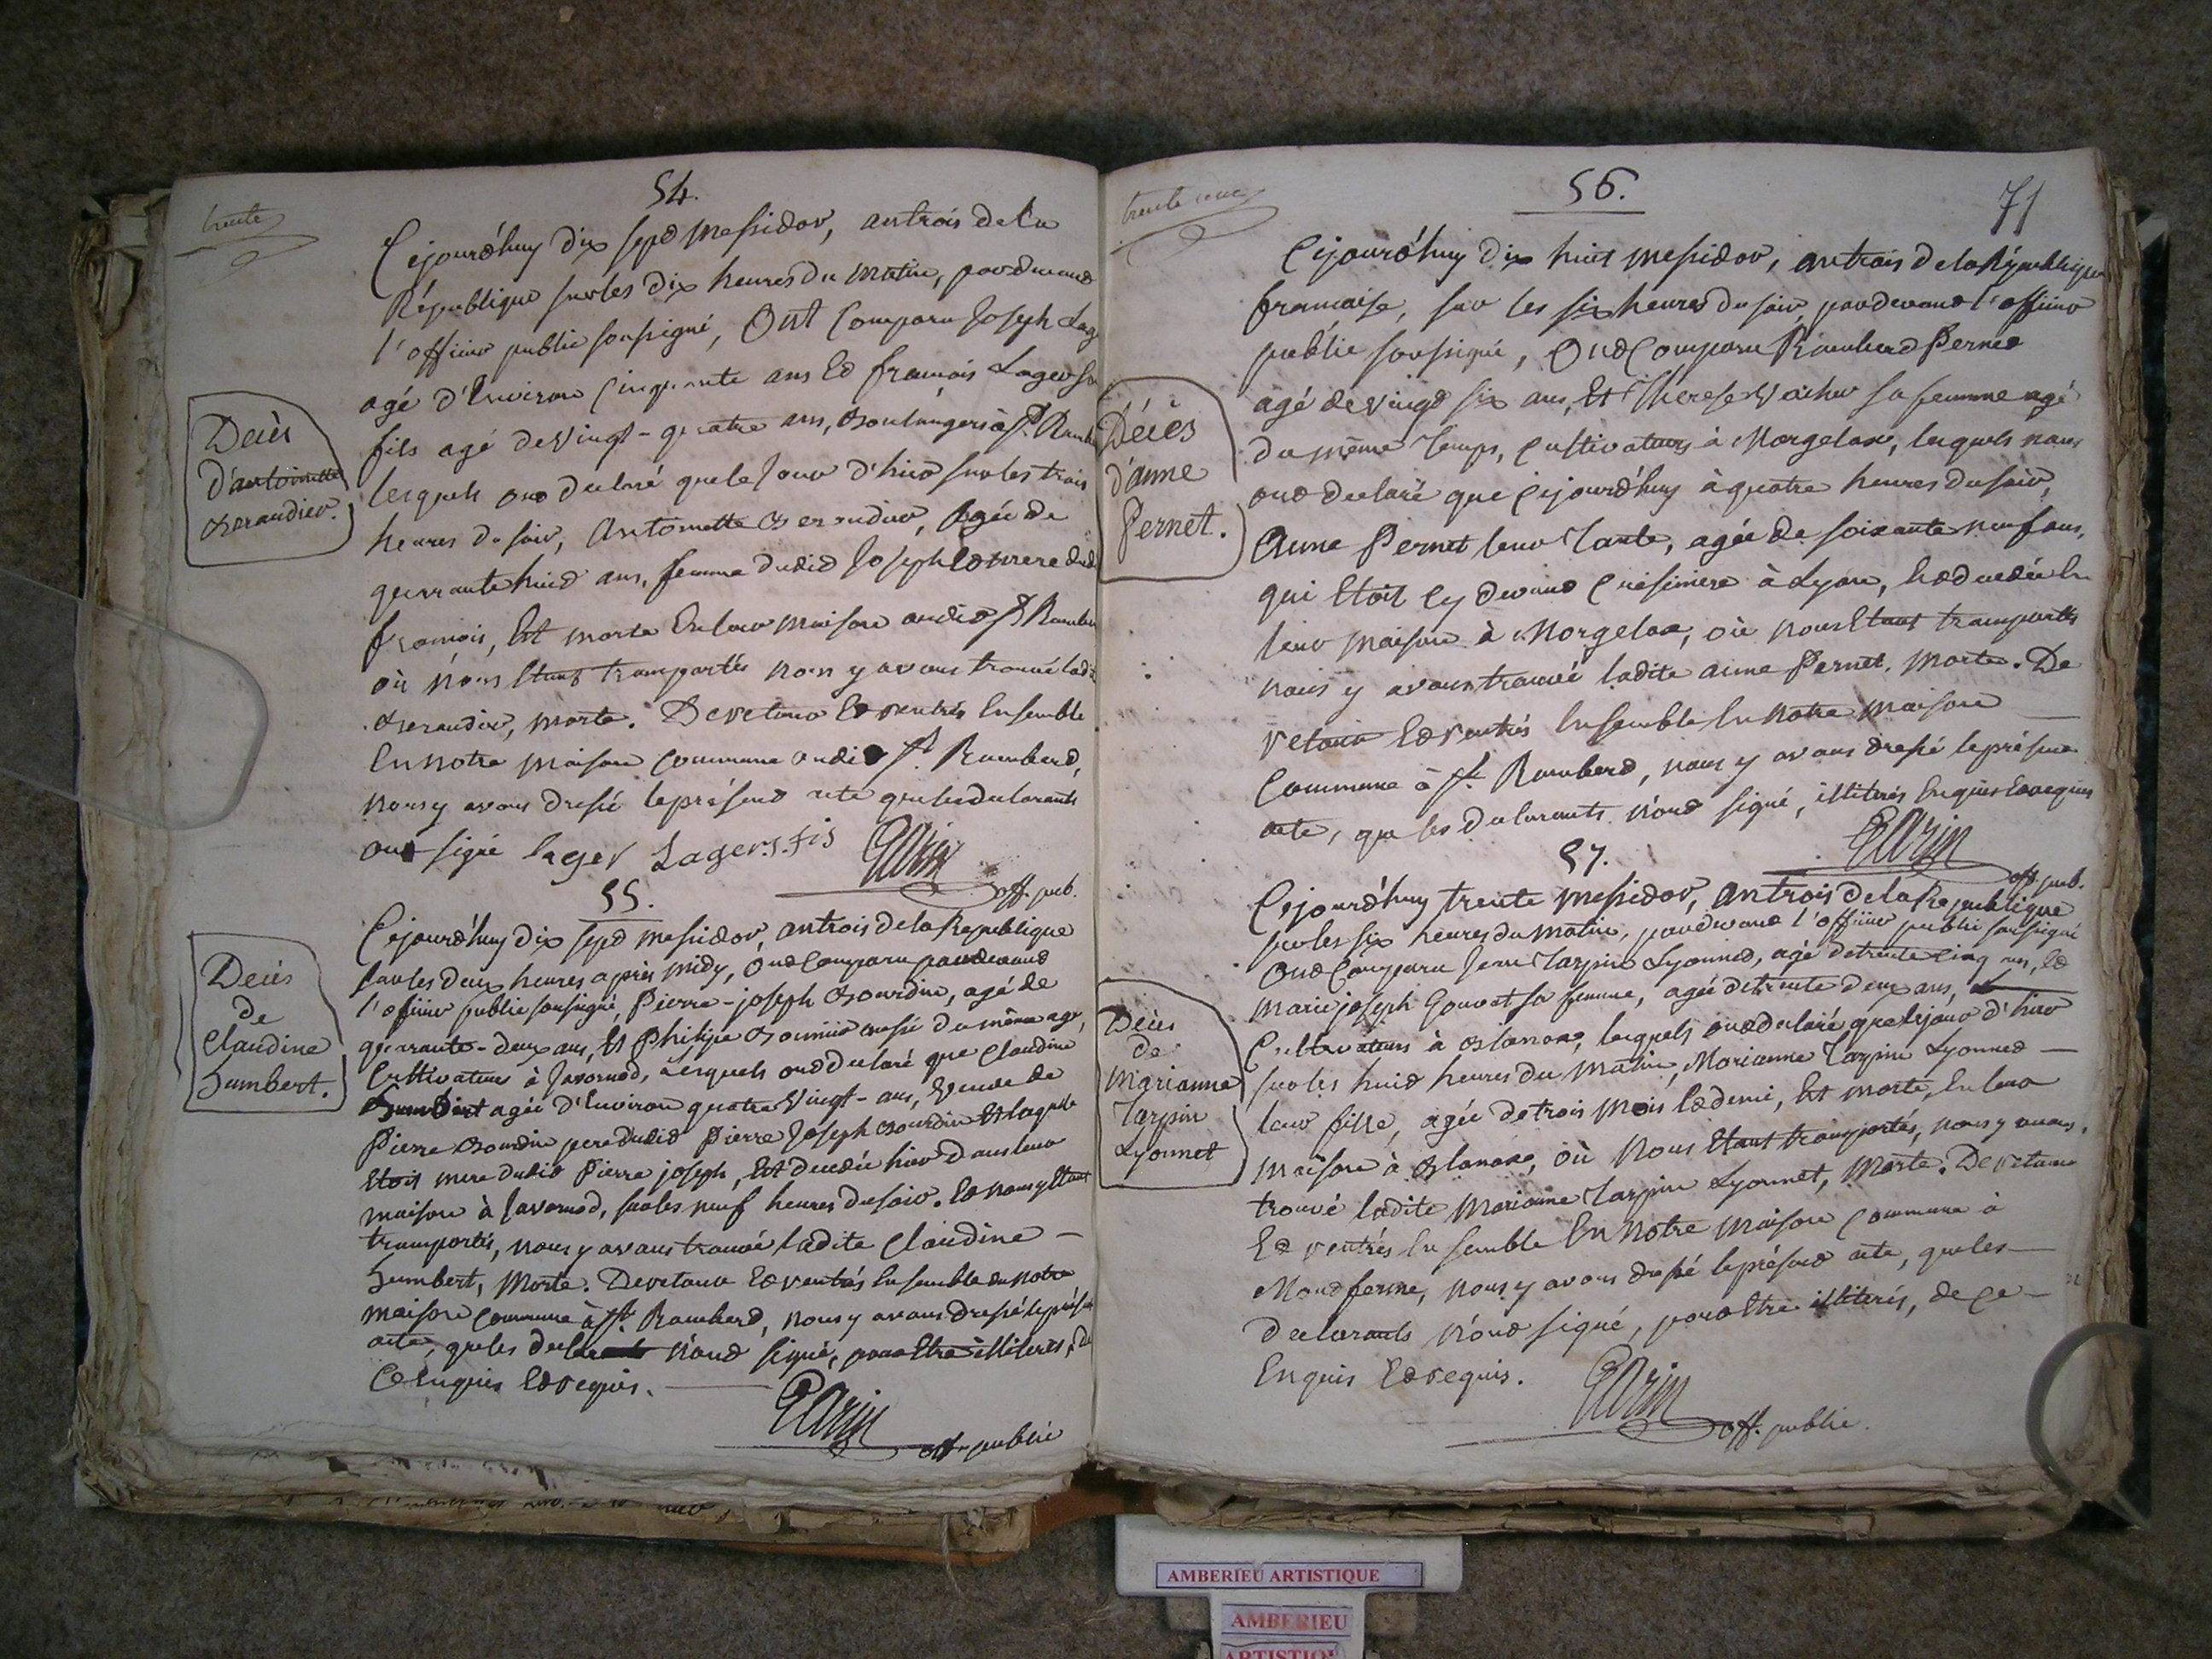 trente
54.
Cejourd'huy dix sept messidor, an trois de la
République sur les dix heures du matin, pardevant
l'officier public soussigné, Ont Comparu Joseph Lag
agé d'Environ Cinquante ans Et francois Lager
fils agé de vingt-quatre ans, Boulangers à St. Ramb
lesquels ont declaré que le Jour d'hier sur les trois
heures du soir, Antoinette Beraudier, Agée de
quarante huit ans, femme dudit Joseph Et mere dud
francois, Est morte En leur maison audit St Ramber
où nous Etant transportés nous y avons trouvé ladi
Beraudier, morte. De retour Et rentrés Ensemble
En notre maison Commune audit St. Rambert,
nous y avons dressé le présent acte que les declarants
ont signé lager Lager. fis Garin
off. pub.
Décès
d'antoinette
Beraudier.
55.
Cejourd'huy dix sept messidor, an trois de la Republique
sur les deux heures après midy, ont Comparu pardevant
l'officier public soussigné, Pierre-joseph Bourdin, agé de
quarante-deux ans, Et Philipe aussi du même age,
Cultivateurs à Javornod, Lesquels ont declaré que Claudine
Jumbert agée d'Environ quatre Vingt-ans, Veuve de
Pierre Bourdin pere dudit Pierre Joseph Bourdin Et laquelle
Etoit mere dudit Pierre joseph, Est decedée hier dans leur
maison à Javornod, sur les neuf heures du soir. Et nous y Etant
transportés, nous y avons trouvé ladite Claudine –
Jumbert, Morte. De retour Et rentrés Ensemble En notre
maison Commune à St. Rambert, nous y avons dressé le présen
acte, que les declarants n'ont signé, pour Etre illiterés, de
Ce Enquis Et requis. Garin
off. public
Décès
de
Claudine
Jumbert.
trente
56.
71
Cejourd'huy dix huit messidor, an trois de la République
francaise, sur les six heures du soir, pardevant l'officier
public soussigné, Ont Comparu Rambert Pernet
agé de vingt six ans, Et Thérese Vacher sa femme agé
du même Temps, Cultivateurs à Morgelax, lesquels nous
ont declaré que Cejourd'huy à quatre heures du soir,
Anne Pernet leur Tante, agée de soixante neuf ans,
qui Etoit Cy devant Cuisiniere à Lyon, Est decedée En
leur maison à Morgelax, où nous Etant transportés
nous y avons trouvé ladite anne Pernet, morte. De
retour Et rentrés Ensemble En notre maison
Commune à St. Rambert, nous y avons dressé le présent
acte, que les declarants n'ont signé, illiterés Enquis Et requis
Garin
off. pub.
Décès
d'anne
Pernet.
57.
Cejourd'huy trente messidor, an trois de la Republique
sur les six heures du matin, pardevant l'officier public soussigné
Ont Comparu Jean Tarpin Lyonnet, agé de trente cinq ans, Et
Marie joseph Gouvat sa femme, agée de trente deux ans,
Cultivateurs à Blanas, lesquels ont declaré que le jour d'hier
sur les huit heures du matin, Marianne Tarpin Lyonnet –
leur fille, agée de trois mois Et demi, Est morte, En leur
maison à Blanas, où nous Etant transportés, nous y avons
trouvé ladite Marianne Tarpin Lyonnet, Morte. De retour
Et rentrés Ensemble En notre maison Commune à
Montferme, nous y avons dressé le présent acte, que les
declarants n'ont signé, pour Etre illiterés, de ce –
Enquis Et requis. Garin
off. public.
Décès
de
Marianne
Tarpin
Lyonnet
AMBERIEU ARTISTIQUE
AMBERIEU
ARTISTIQU